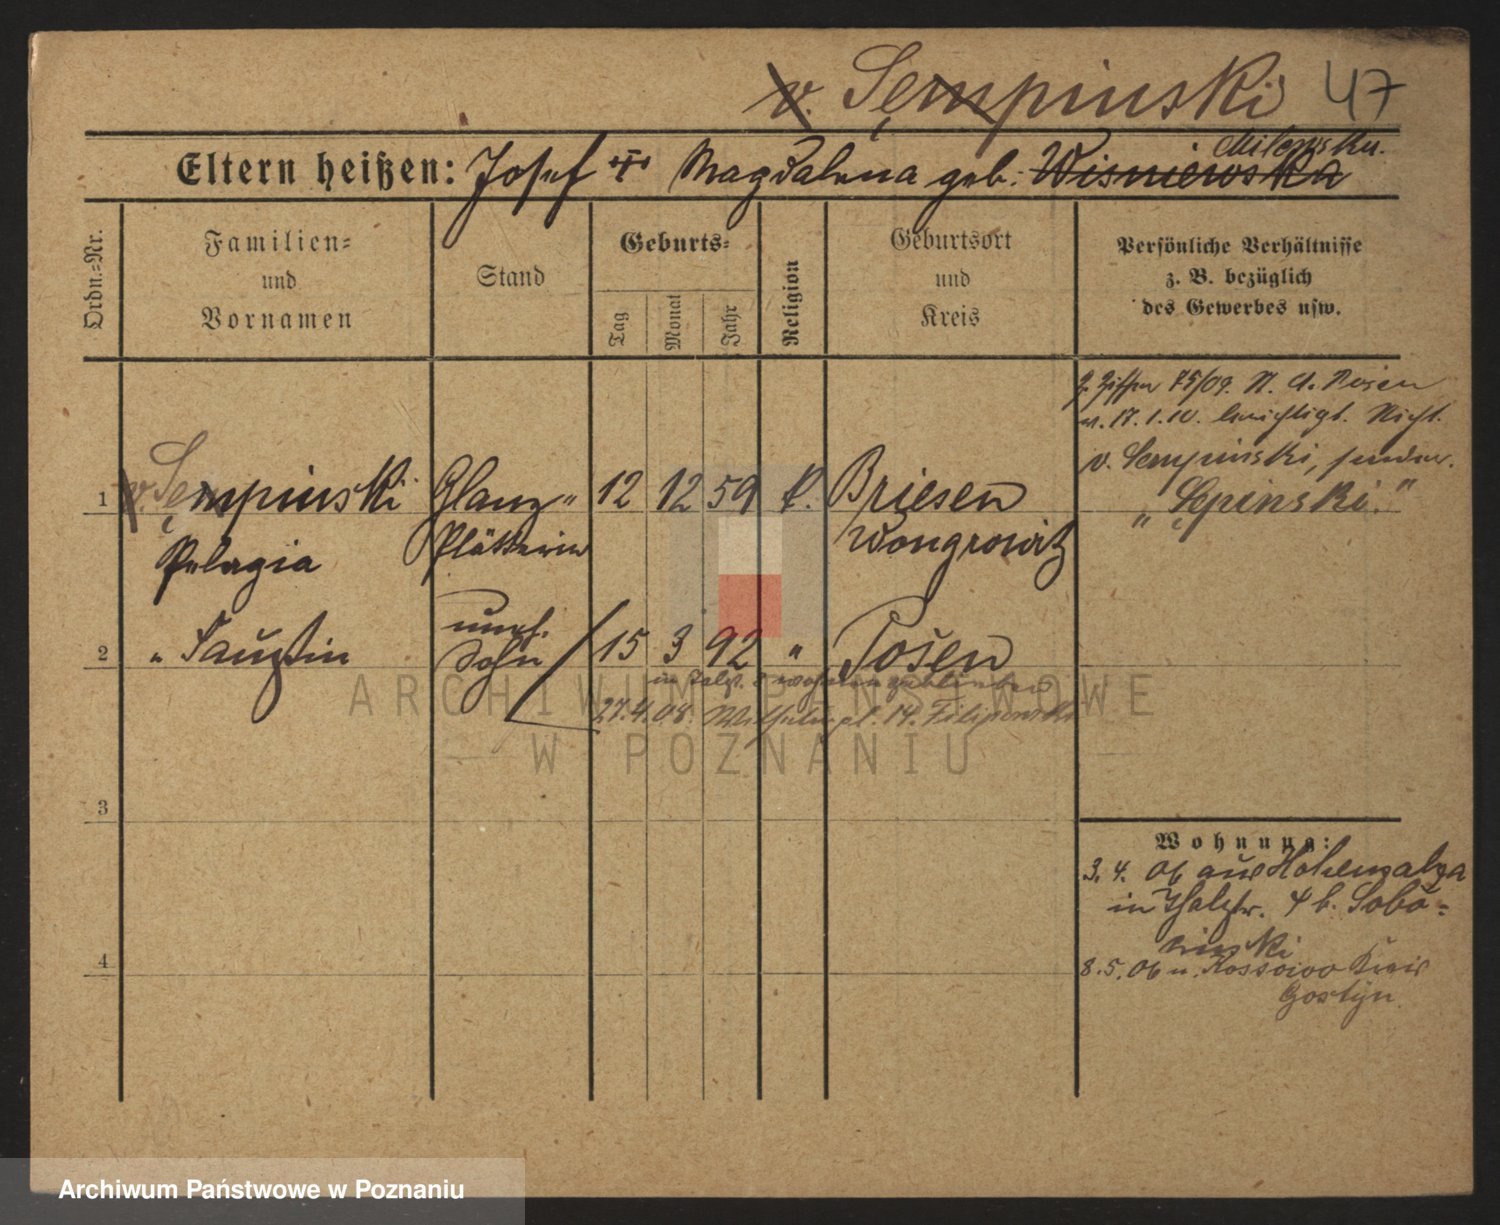 v. Sempinski 47
Eltern heißen: Josef Magdalena geb. Wisniewska Milewska.
Ordn.-Nr.
Familien-
und
Vornamen
Stand
Geburts-
Tag
Monat
Jahr
Religion
Geburtsort
und
Kreis
Persönliche Verhältnisse
z. B. bezüglich
des Gewerbes usw.
75/09. Posen
v. 17.1.10. berichtigt. Nicht
v. Sempinski, sondern
"Sępinski."
1 v. Sempinski Glanz" 12 12 59 k. Briesen
Pelagia Plätterin Wongrowitz
2 " Faustin Sohn 15 3 92 " Posen
27.4.08. Wilhelmpl. 14. Filipowski
3
4
Wohnung:
3. 4. 06 aus Hohensalza
in Thalstr. 4 b. Sobo-
cinski
8. 5. 06 n. Kreis
Gostyn.
ARCHIWUM PAŃSTWOWE
W POZNANIU
Archiwum Państwowe w Poznaniu